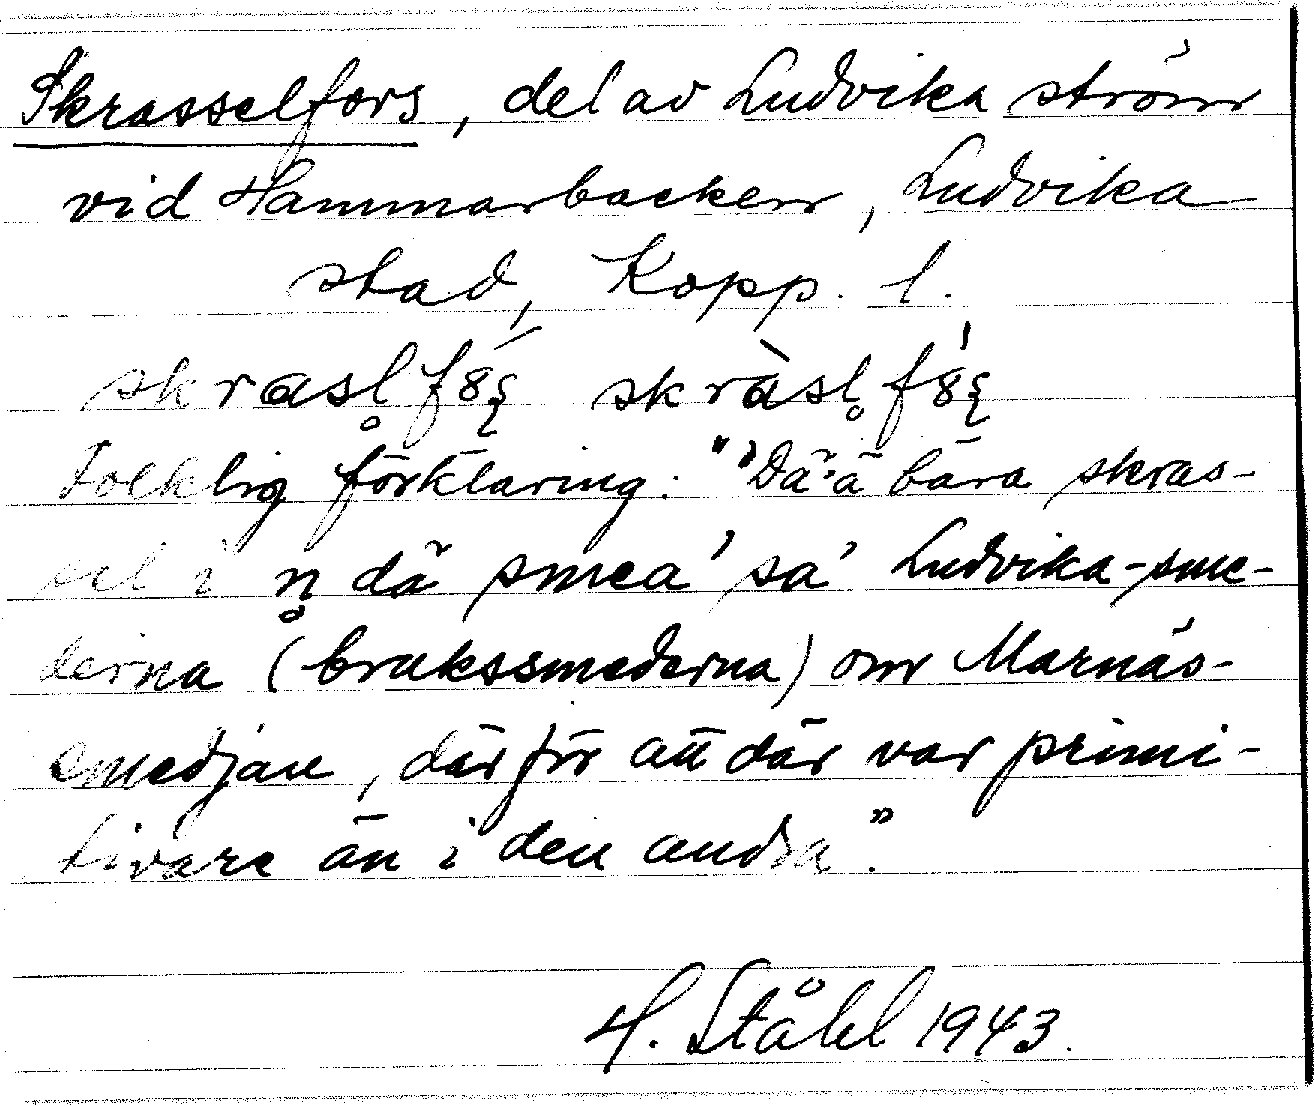 Skrasselfors, del av Ludvika ström
vid Hammarbacken, Ludvika
stad, Kopp. l.
skrasl̥ f8ʂ skràsl̥ f8́ʂ
Folklig förklaring: "'Dä ä bara skras-
sel i n̥ dä smea' sa' Ludvika-sme-
derna (brukssmederna) om Marnäs-
smedjan, därför att där var primi-
tivare än i den andra."
H. Ståhl 1943.